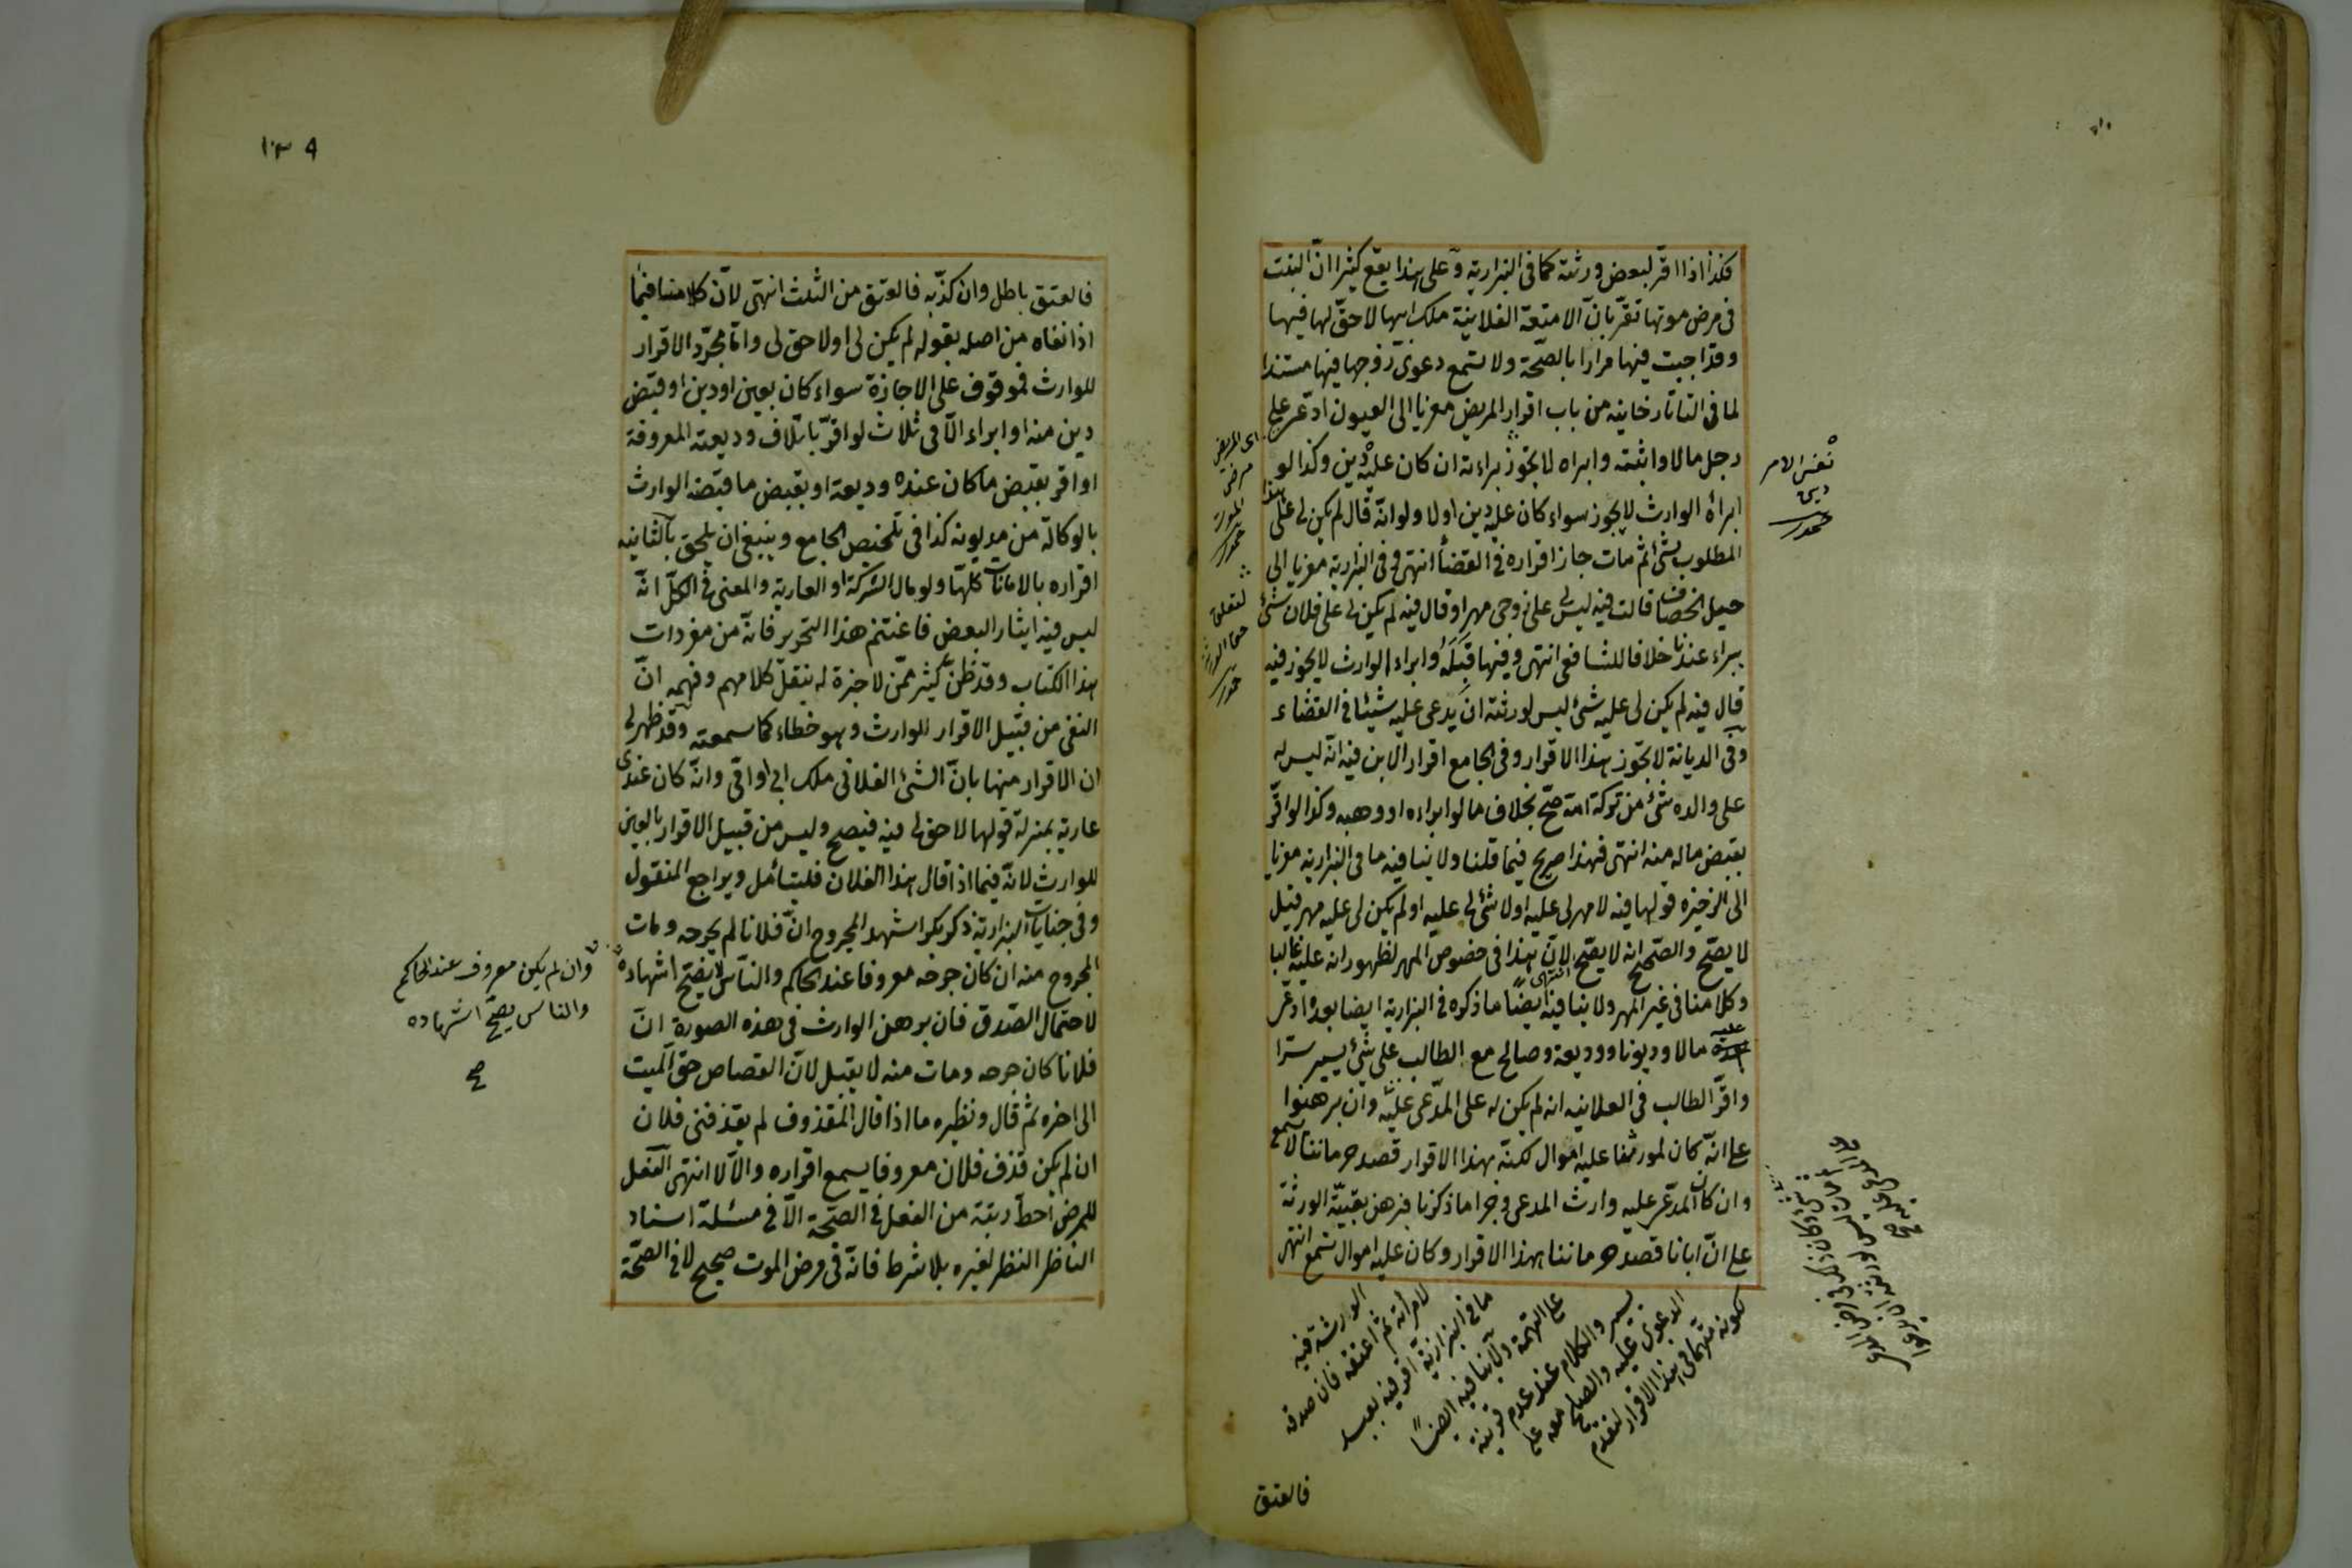 فكذا اذا اقر لبعض ورثته كما فى البزازية وعلى هذا يقع كثيرا ان البنت
فى مرض موتها تقر بان الامتعة الفلانية ملك ابيها لا حق لها فيها
وقد اجبت فيها مرارا بالصحة ولا تسمع دعوى زوجها فيها مستندا
لما فى التاتارخانية من باب اقرار المريض معزيا الى العيون ادعى على
رجل مالا واثبته وابراه لا تجوز براءته ان كان عليه دين وكذا لو
ابرأه الوارث لا يجوز سواء كان عليه دين اولا ولو انه قال لم يكن لى على هذا
المطلوب شئ ثم مات جاز اقراره فى القضاء انتهى وفى البزازية معزيا الى
حيل الخصاف قالت فيه ليس لى على زوجى مهر او قال فيه لم يكن لى على فلان شئ
يبراء عندنا خلافا للشافعى انتهى وفيها قبله وابراء الوارث لا يجوز فيه
قال فيه لم يكن لى عليه شئ ليس لورثته ان يدعى عليه شيئا فى القضاء
وفى الديانة لا يجوز هذا الاقرار وفى الجامع اقرار الابن فيه انه ليس له
على والده شئ من تركة امه صح بخلاف ما لو ابراءه او وهبه وكذا لو اقر
بقبض ماله منه انتهى فهذا صريح فيما قلنا ولا ينافيه ما فى البزازية معزيا
الى الذخيرة قولها فيه لا مهر لى عليه او لا شئ لى عليه او لم يكن لى عليه مهر قيل
لا يصح والصحيح انه لا يصح انتهى لان هذا فى خصوص المهر لظهور انه عليه غالبا
وكلامنا فى غير المهر ولا ينافيه ايضا ما ذكره فى البزازية ايضا بعده ادعى
عليه مالا وديونا ووديعة وصالح مع الطالب على شئ يسير سترا
واقر الطالب فى العلانية انه لم يكن له على المدعى عليه وان برهنوا
على انه كان لمورثنا عليه اموال لكنه بهذا الاقرار قصد حرماننا لا تسمع
وان كان المدعى عليه وارث المدعى وجرا ما ذكرنا فبرهن بقية الورثة
على ان ابانا قصد حرماننا بهذا الاقرار وكان عليه اموال تسمع انتهى
لكونه متهما فى هذا الاقرار لتقدم
الدعوى عليه والصلح معه على
يسير والكلام عند عدم قرينة
على التهمة ولا ينافيه ايضا
ما فى البزازية اقر فيه بعبد
لامرأته ثم اعتقه فان صدقه
الورثة فيه
فالعتق
نفس الامر
دين
اى المريض
مرض
الموت
لتعلق
حق الورثة
١٣٩
فالعتق باطل وان كذبه فالعتق من الثلث انتهى لان كلامنا فيما
اذا نفاه من اصله بقوله لم يكن لى او لا حق لى واما مجرد الاقرار
للوارث فموقوف على الاجازة سواء كان بعين او دين او قبض
دين منه او ابراء الا فى ثلاث لو اقر باتلاف وديعته المعروفة
او اقر بقبض ما كان عنده وديعة او بقبض ما قبضه الوارث
بالوكالة من مديونه كذا فى تلخيص الجامع وينبغى ان يلحق بالثانية
اقراره بالامانات كلها ولو مال الشركة او العارية والمعنى فى الكل انه
ليس فيه ايثار البعض فاغتنم هذا التحرير فانه من مفردات
هذا الكتاب وقد ظن كثير ممن لا خبرة له بنقل كلامهم وفهمه ان
النفى من قبيل الاقرار للوارث وهو خطاء كما سمعته وقد ظهر لى
ان الاقرار منها بان الشئ الفلانى ملك ابى او امى وانه كان عندى
عارية بمنزلة قولها لا حق لى فيه فيصح وليس من قبيل الاقرار بالعين
للوارث لانه فيما اذا قال هذا لفلان فليتأمل ويراجع المنقول
وفى جنايات البزازية ذكر بكر اشهد المجروح ان فلانا لم يجرحه ومات
المجروح منه ان كان جرحه معروفا عند الحاكم والناس لا يصح اشهاده
لاحتمال الصدق فان برهن الوارث فى هذه الصورة ان
فلانا كان جرحه ومات منه لا يقبل لان القصاص حق الميت
الى اخره ثم قال ونظيره ما اذا قال المقذوف لم يقذفنى فلان
ان لم يكن قذف فلان معروفا يسمع اقراره والا لا انتهى الفعل
للمرض احط رتبة من الفعل فى الصحة الا فى مسئلة اسناد
الناظر النظر لغيره بلا شرط فانه فى مرض الموت صحيح لا فى الصحة
وان لم يكن معروف عند الحاكم
والناس يصح اشهاده
صح